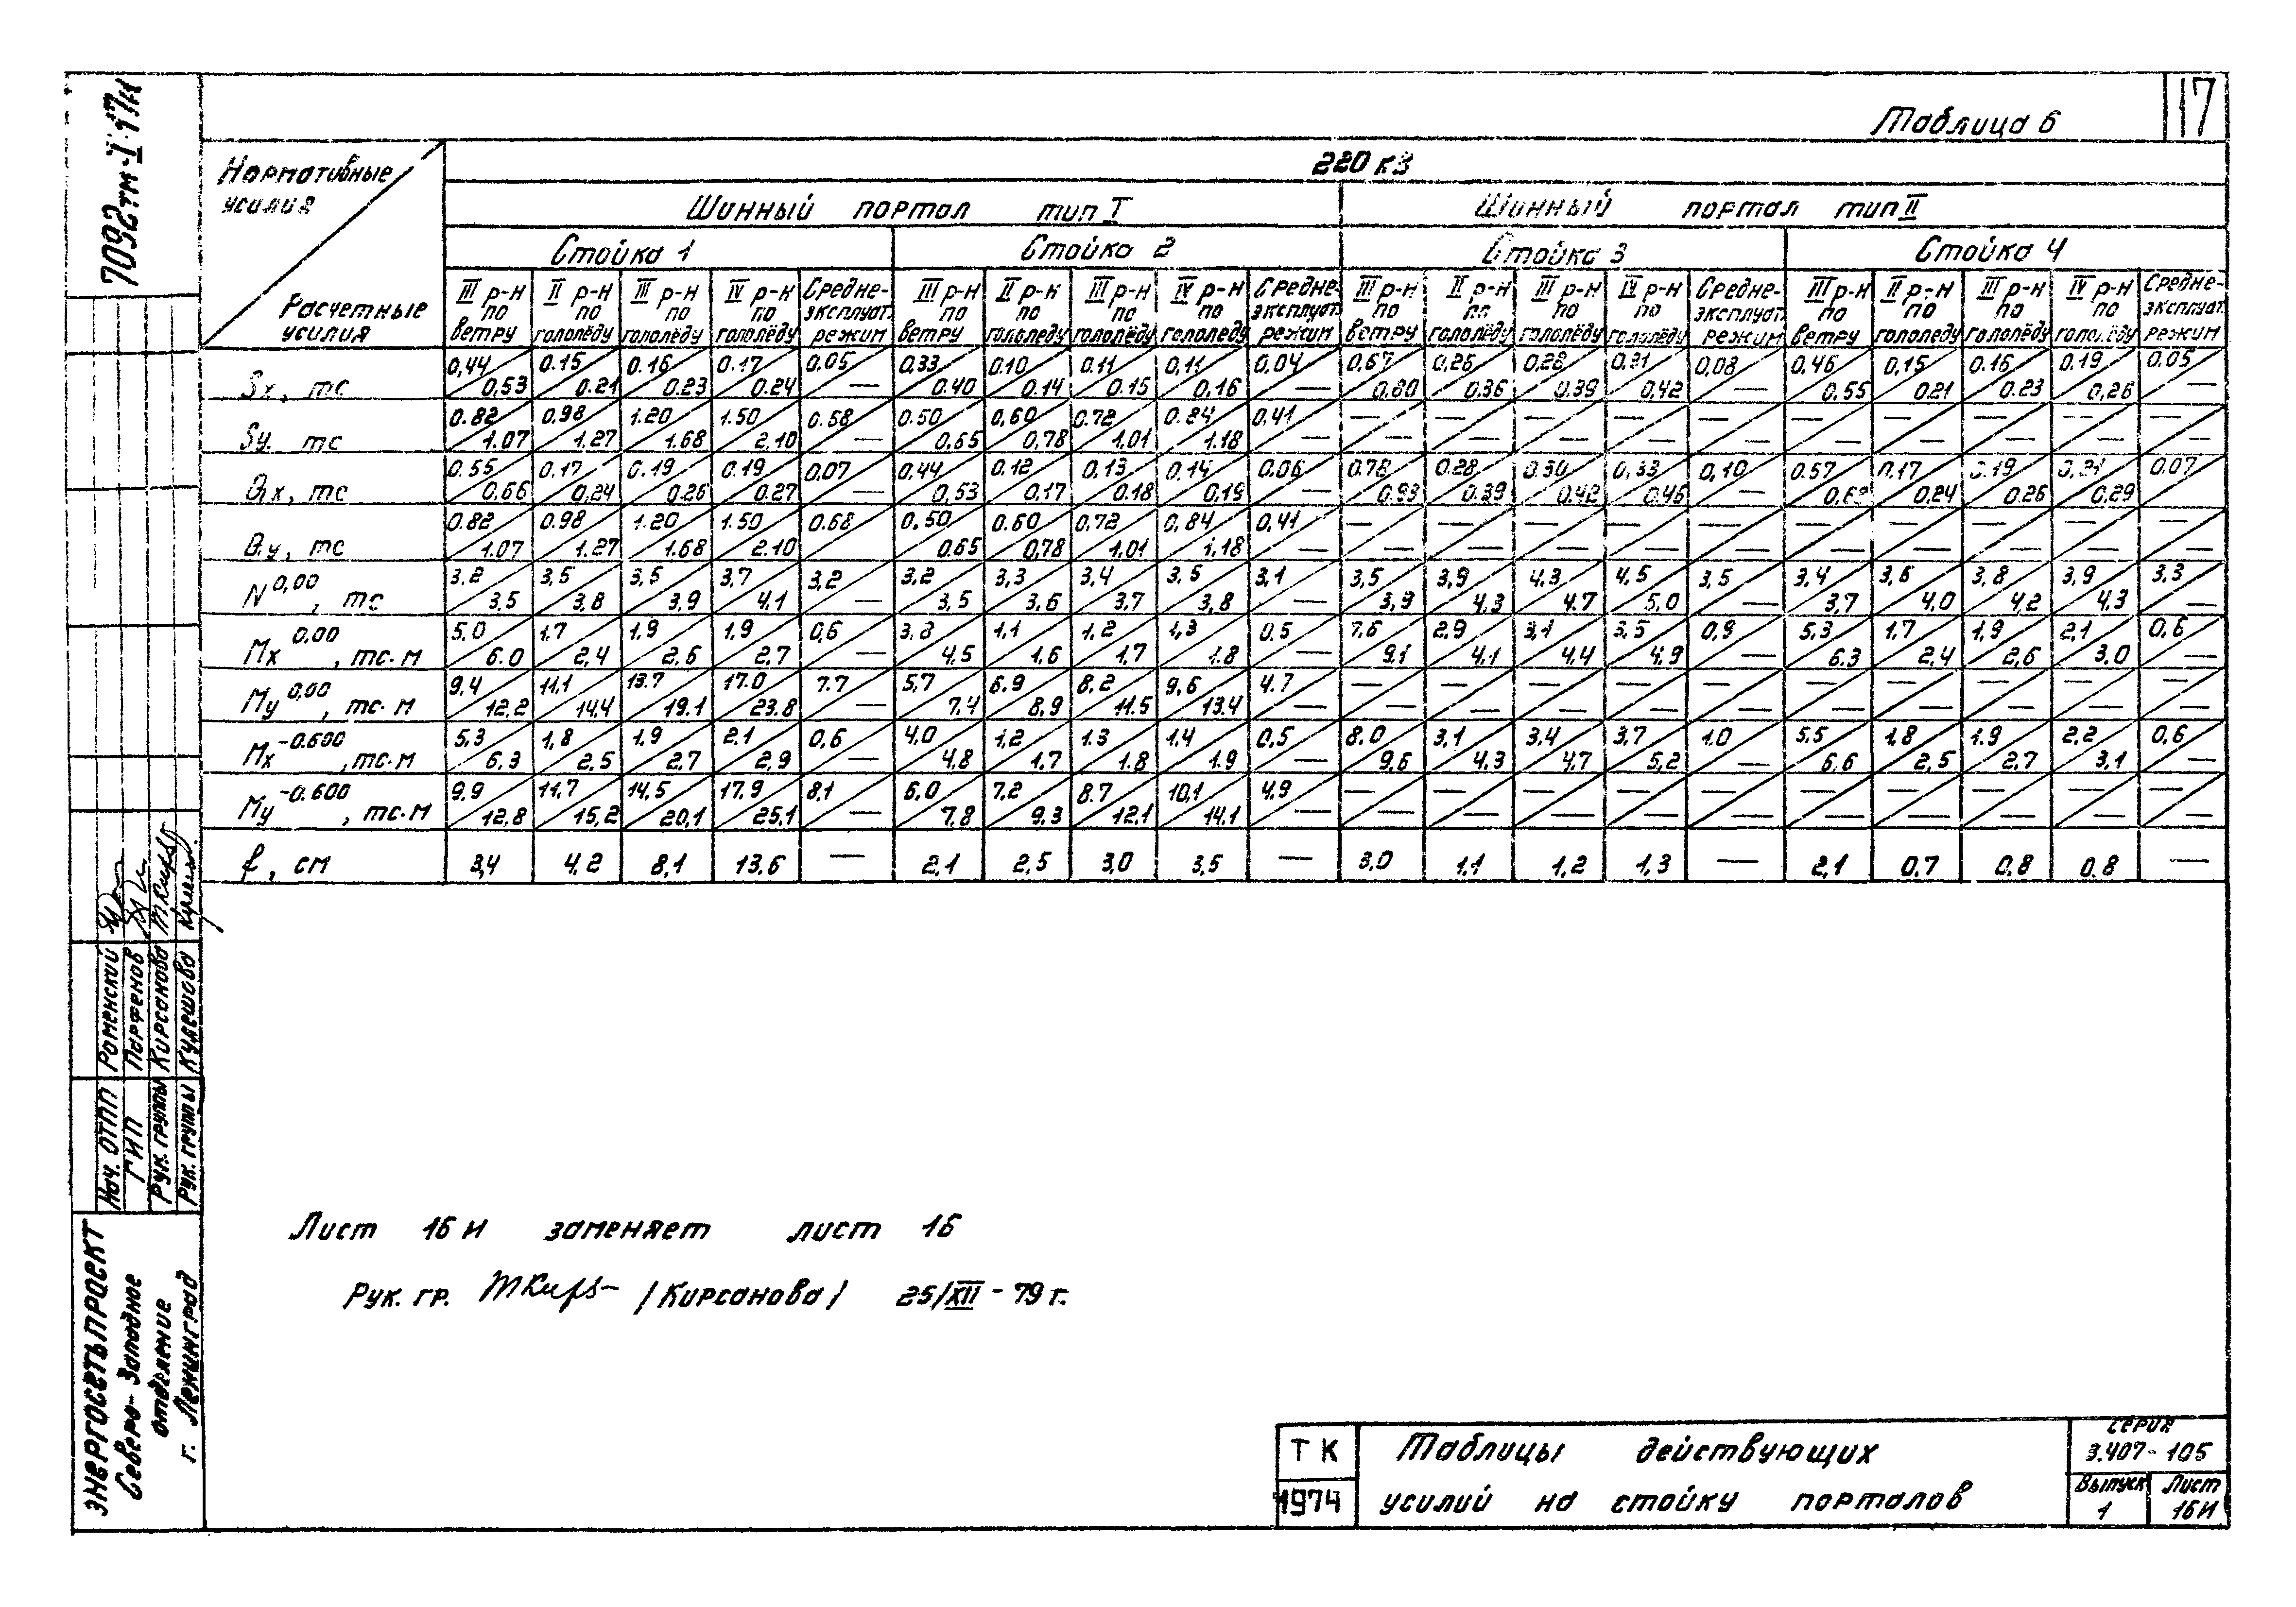 17
Таблица 6
Нормативные усилия
Расчетные усилия
220 кВ
Шинный портал тип I
Шинный портал тип II
Стойка 1
Стойка 2
Стойка 3
Стойка 4
III р-н по ветру | II р-н по гололёду | III р-н по гололёду | IV р-н по гололёду | Средне-эксплуат. режим | III р-н по ветру | II р-н по гололеду | III р-н по гололёду | IV р-н по гололеду | Средне-эксплуат. режим | III р-н по ветру | II р-н по гололёду | III р-н по гололёду | IV р-н по гололёду | Средне-эксплуат. режим | III р-н по ветру | II р-н по гололеду | III р-н по гололёду | IV р-н по гололёду | Средне-эксплуат. режим
Sx, тс | 0,44/0,53 | 0.15/0.21 | 0.16/0.23 | 0.17/0.24 | 0,05/— | 0,33/0.40 | 0,10/0.14 | 0.11/0.15 | 0,11/0,16 | 0,04/— | 0,67/0,80 | 0,26/0,36 | 0,28/0.39 | 0,31/0,42 | 0,08/— | 0,46/0.55 | 0,15/0.21 | 0.16/0.23 | 0.19/0,26 | 0.05/—
Sy. тс | 0.82/1.07 | 0.98/1.27 | 1.20/1.68 | 1.50/2.10 | 0.68/— | 0.50/0,65 | 0,60/0,78 | 0.72/1,01 | 0.84/1.18 | 0,41/— | —/— | —/— | —/— | —/— | —/— | —/— | —/— | —/— | —/— | —/—
Qx, тс | 0.55/0,66 | 0.17/0,24 | 0.19/0.26 | 0.19/0.27 | 0,07/— | 0,44/0,53 | 0.12/0,17 | 0.13/0.18 | 0.14/0,19 | 0.06/— | 0.78/0.93 | 0.28/0.39 | 0.30/0.42 | 0,33/0.46 | 0,10/— | 0.57/0,68 | 0.17/0.24 | 0.19/0.26 | 0.21/0.29 | 0.07/—
Qy, тс | 0.82/1.07 | 0.98/1.27 | 1.20/1.68 | 1.50/2.10 | 0.68/— | 0.50/0.65 | 0.60/0,78 | 0,72/1,01 | 0,84/1,18 | 0,41/— | —/— | —/— | —/— | —/— | —/— | —/— | —/— | —/— | —/— | —/—
N 0,00, тс | 3,2/3,5 | 3,5/3,8 | 3,5/3,9 | 3,7/4,1 | 3,2/— | 3,2/3,5 | 3,3/3,6 | 3,4/3,7 | 3,5/3,8 | 3,1/— | 3,5/3,9 | 3,9/4,3 | 4.3/4.7 | 4,5/5,0 | 3,5/— | 3,4/3,7 | 3,6/4,0 | 3,8/4,2 | 3,9/4,3 | 3,3/—
Mx 0,00, тс.м | 5,0/6.0 | 1.7/2,4 | 1,9/2,6 | 1,9/2,7 | 0,6/— | 3,8/4,5 | 1,1/1,6 | 1,2/1,7 | 1,3/1.8 | 0.5/— | 7,6/9,1 | 2,9/4.1 | 3,1/4,4 | 3,5/4,9 | 0,9/— | 5,3/6.3 | 1,7/2,4 | 1,9/2,6 | 2,1/3,0 | 0,6/—
My 0,00, тс.м | 9,4/12,2 | 11,1/14,4 | 13.7/19.1 | 17.0/23.8 | 7.7/— | 5,7/7,4 | 6.9/8,9 | 8,2/11.5 | 9,6/13.4 | 4.7/— | —/— | —/— | —/— | —/— | —/— | —/— | —/— | —/— | —/— | —/—
Mx -0.600, тс.м | 5,3/6,3 | 1,8/2,5 | 1,9/2,7 | 2.1/2,9 | 0,6/— | 4,0/4,8 | 1,2/1,7 | 1.3/1.8 | 1.4/1.9 | 0,5/— | 8,0/9,6 | 3,1/4,3 | 3,4/4,7 | 3,7/5,2 | 1.0/— | 5,5/6,6 | 1,8/2,5 | 1.9/2,7 | 2,2/3,1 | 0,6/—
My -0.600, тс.м | 9,9/12,8 | 11,7/15,2 | 14,5/20,1 | 17,9/25,1 | 8,1/— | 6,0/7,8 | 7,2/9,3 | 8.7/12,1 | 10,1/14,1 | 4,9/— | —/— | —/— | —/— | —/— | —/— | —/— | —/— | —/— | —/— | —/—
f, см | 3,4 | 4,2 | 8,1 | 13.6 | — | 2,1 | 2,5 | 3,0 | 3,5 | — | 3,0 | 1,1 | 1,2 | 1,3 | — | 2,1 | 0,7 | 0,8 | 0.8 | —
Лист 16 и заменяет лист 16
Рук. гр. /Кирсанова/ 25/XII - 79 г.
7092тм-I 17и
Нач. ОТПП Роменский
ГИП Парфенов
Рук. группы Кирсанова
Рук. группы Кулешова
ЭНЕРГОСЕТЬПРОЕКТ
Северо-Западное
отделение
г. Ленинград
ТК
1974
Таблицы действующих
усилий на стойку порталов
серия
3.407-105
Выпуск
1
Лист
16И